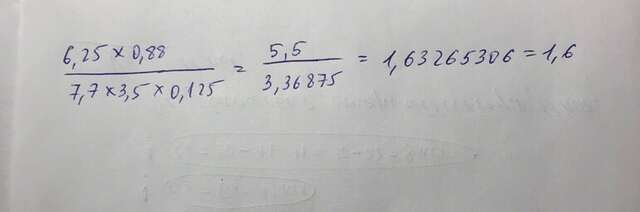 6,25 × 0,88 / 7,7 × 3,5 × 0,125 = 5,5 / 3,36875 = 1,63265306 = 1,6